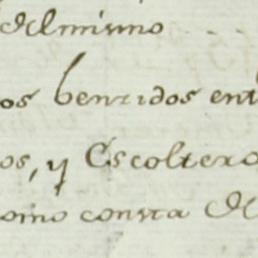 delmismo
os benzidos ent
os, y Escoltero
omo consta de